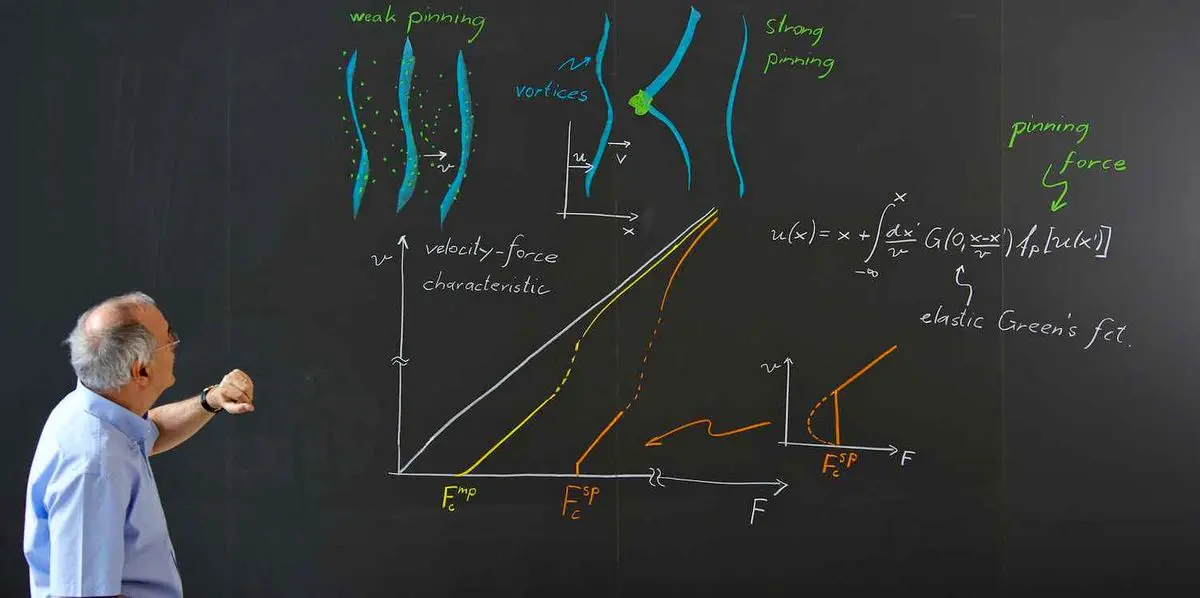 weak pinning
strong
pinning
vortices
u
v
v
x
pinning
force
u(x) = x + ∫_{-∞}^{x} dx'/v G(0, x-x'/v) f_p[u(x')]
elastic Green's fct.
v
velocity-force
characteristic
F_c^{mp}
F_c^{sp}
F
v
F_c^{sp}
F